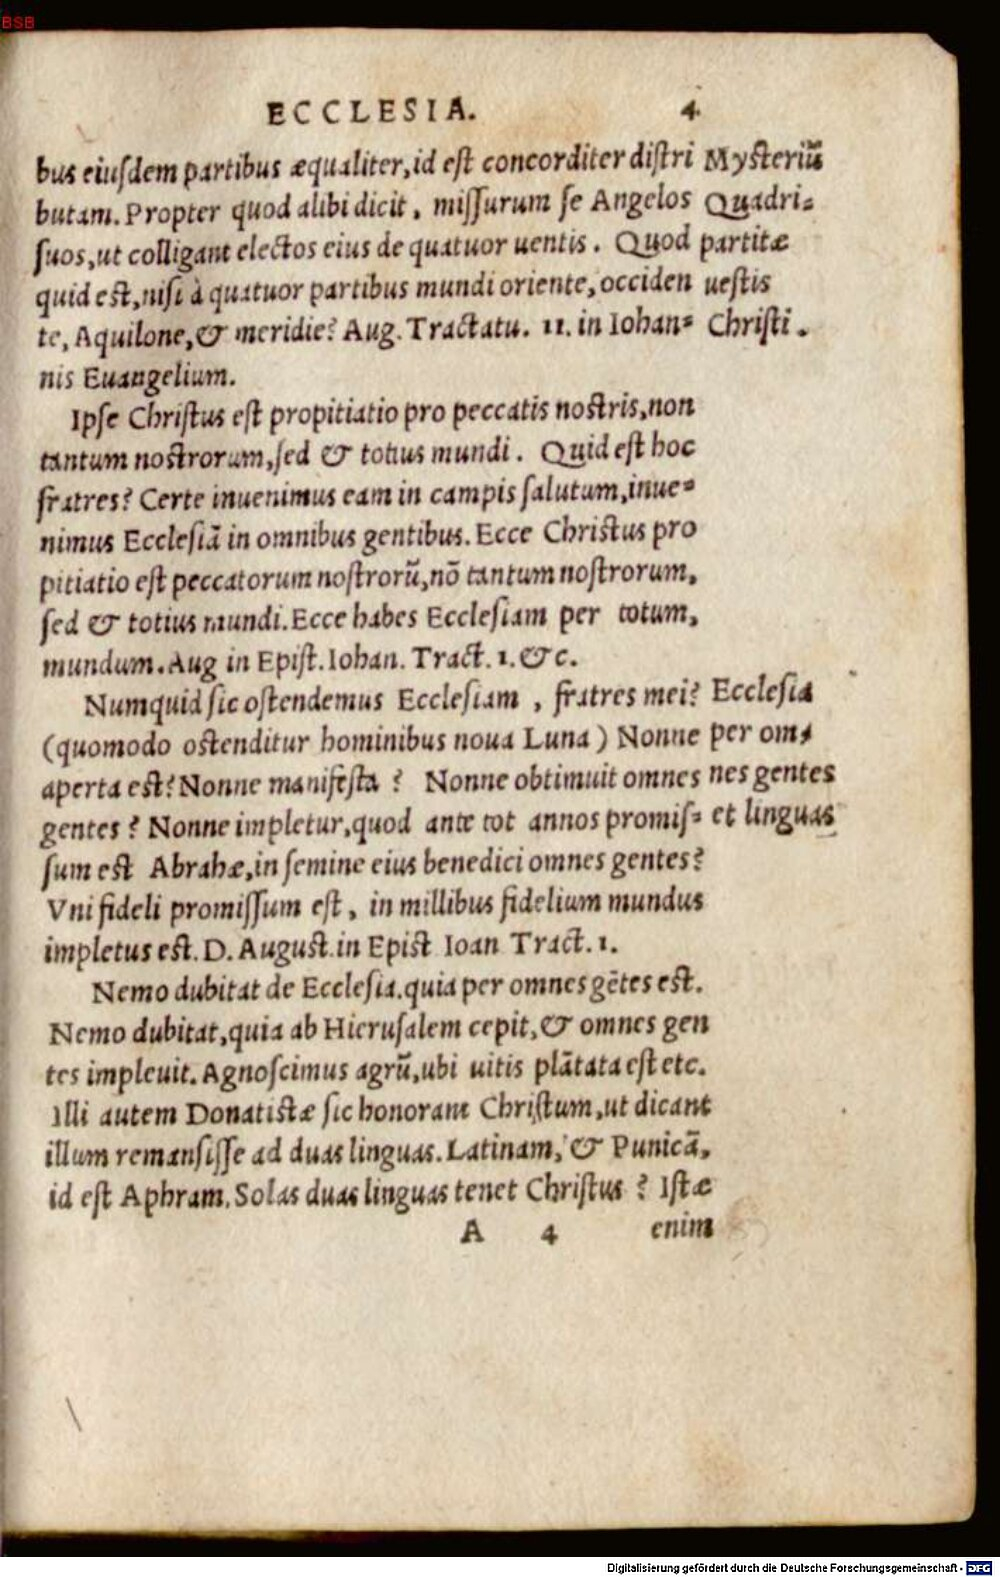 BSB
ECCLESIA. 4
bus eiusdem partibus æqualiter, id est concorditer distri
butam. Propter quod alibi dicit, missurum se Angelos
suos, ut colligant electos eius de quatuor uentis. Quod
quid est, nisi à quatuor partibus mundi oriente, occiden
te, Aquilone, & meridie? Aug. Tractatu. 11. in Iohan=
nis Euangelium.
Mysteriũ
Quadri=
partitæ
uestis
Christi.
Ipse Christus est propitiatio pro peccatis nostris, non
tantum nostrorum, sed & totius mundi. Quid est hoc
fratres? Certe inuenimus eam in campis salutum, inue=
nimus Ecclesiã in omnibus gentibus. Ecce Christus pro
pitiatio est peccatorum nostrorũ, nõ tantum nostrorum,
sed & totius mundi. Ecce habes Ecclesiam per totum,
mundum. Aug in Epist. Iohan. Tract. 1. &c.
Numquid sic ostendemus Ecclesiam, fratres mei?
(quomodo ostenditur hominibus noua Luna) Nonne
aperta est? Nonne manifesta? Nonne obtimuit omnes
gentes? Nonne impletur, quod ante tot annos promis=
sum est Abrahæ, in semine eius benedici omnes gentes?
Vni fideli promissum est, in millibus fidelium mundus
impletus est. D. August. in Epist Ioan Tract. 1.
Ecclesia
per om=
nes gentes
et linguas
Nemo dubitat de Ecclesia. quia per omnes gẽtes est.
Nemo dubitat, quia ab Hierusalem cepit, & omnes gen
tes impleuit. Agnoscimus agrũ, ubi uitis plãtata est etc.
Illi autem Donatistæ sic honorant Christum, ut dicant
illum remansisse ad duas linguas. Latinam, & Punicã,
id est Aphram. Solas duas linguas tenet Christus? Istæ
A 4 enim
Digitalisierung gefördert durch die Deutsche Forschungsgemeinschaft - DFG